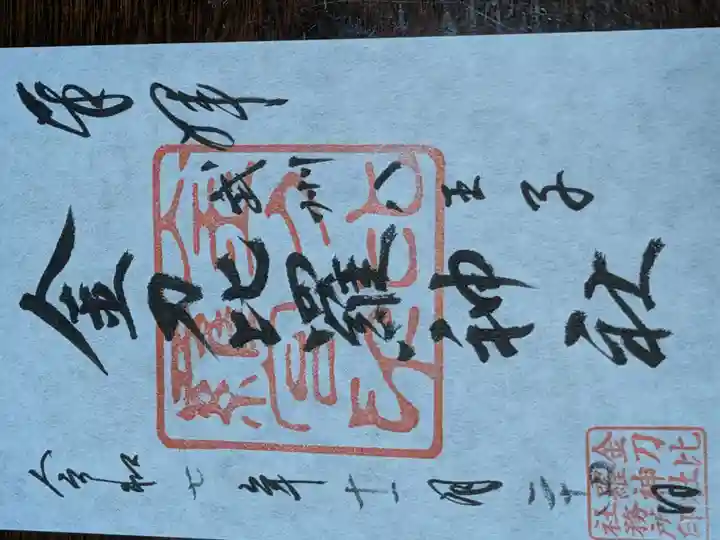 奉拝
武州八王子
金刀比羅神社
令和七年十一月二十四日
金刀比
羅神社
社務所印